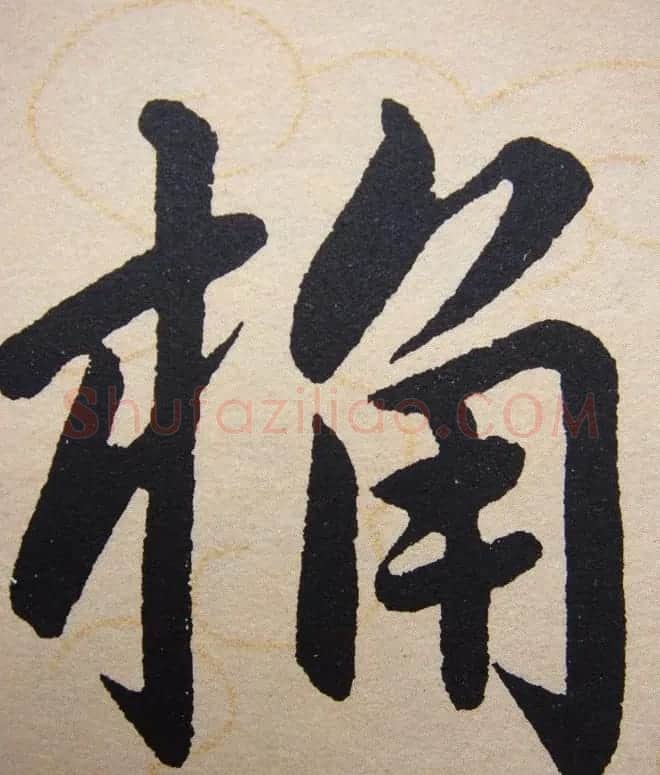 桷
Shufaziliao.COM